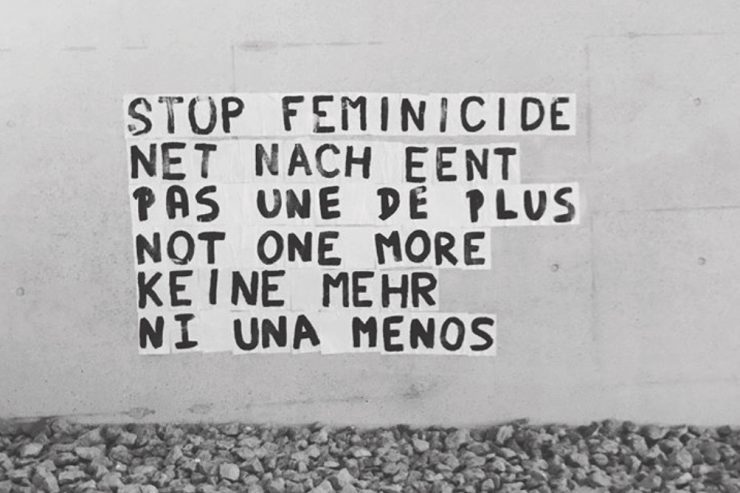 STOP FEMINICIDE
NET NACH EENT
PAS UNE DE PLUS
NOT ONE MORE
KEINE MEHR
NI UNA MENOS